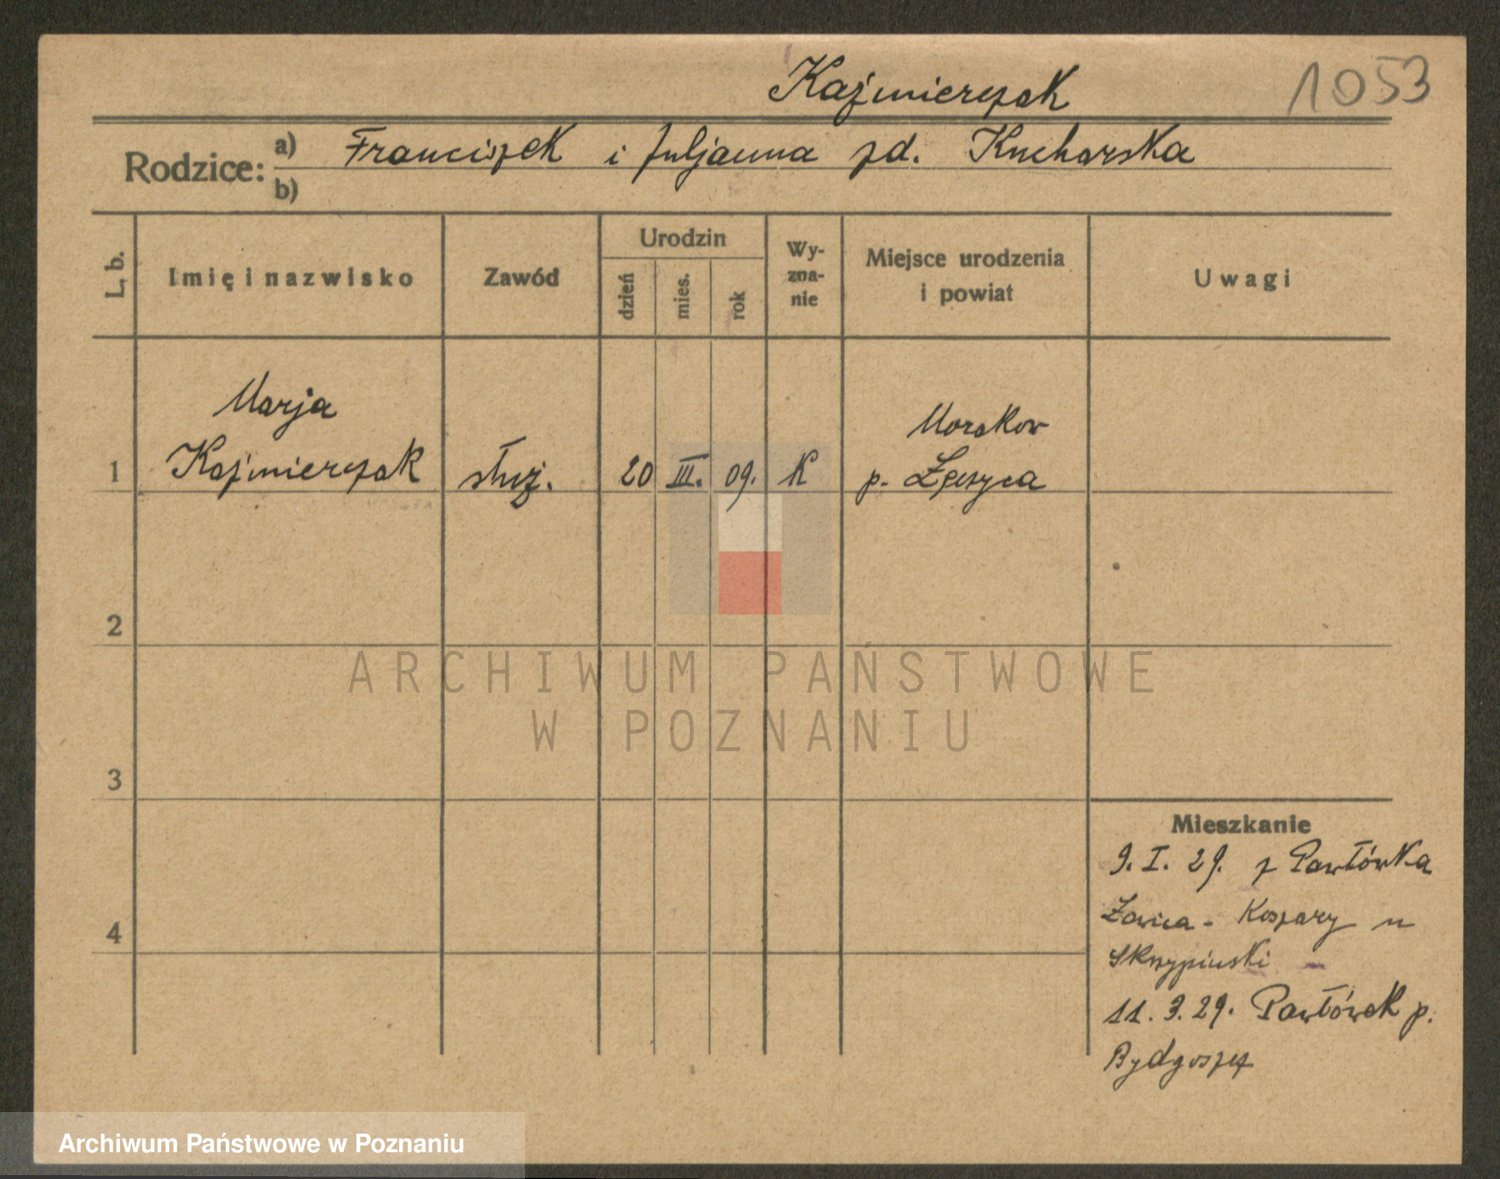 Kaźmierczak 1053
Rodzice: a) Franciszek i Juljanna zd. Kucharska
b)
L. b.
Imię i nazwisko
Zawód
Urodzin
dzień
mies.
rok
Wy-
zna-
nie
Miejsce urodzenia
i powiat
Uwagi
Marja
Kaźmierczak
służ.
20 III. 09. K
Morakow
p.
1
2
3
4
Mieszkanie
9. I. 29. z Pawłówka
Koszary u
Skrzypinski
11. 3. 29. Pawłówek p.
Bydgoszcz
ARCHIWUM PAŃSTWOWE
W POZNANIU
Archiwum Państwowe w Poznaniu